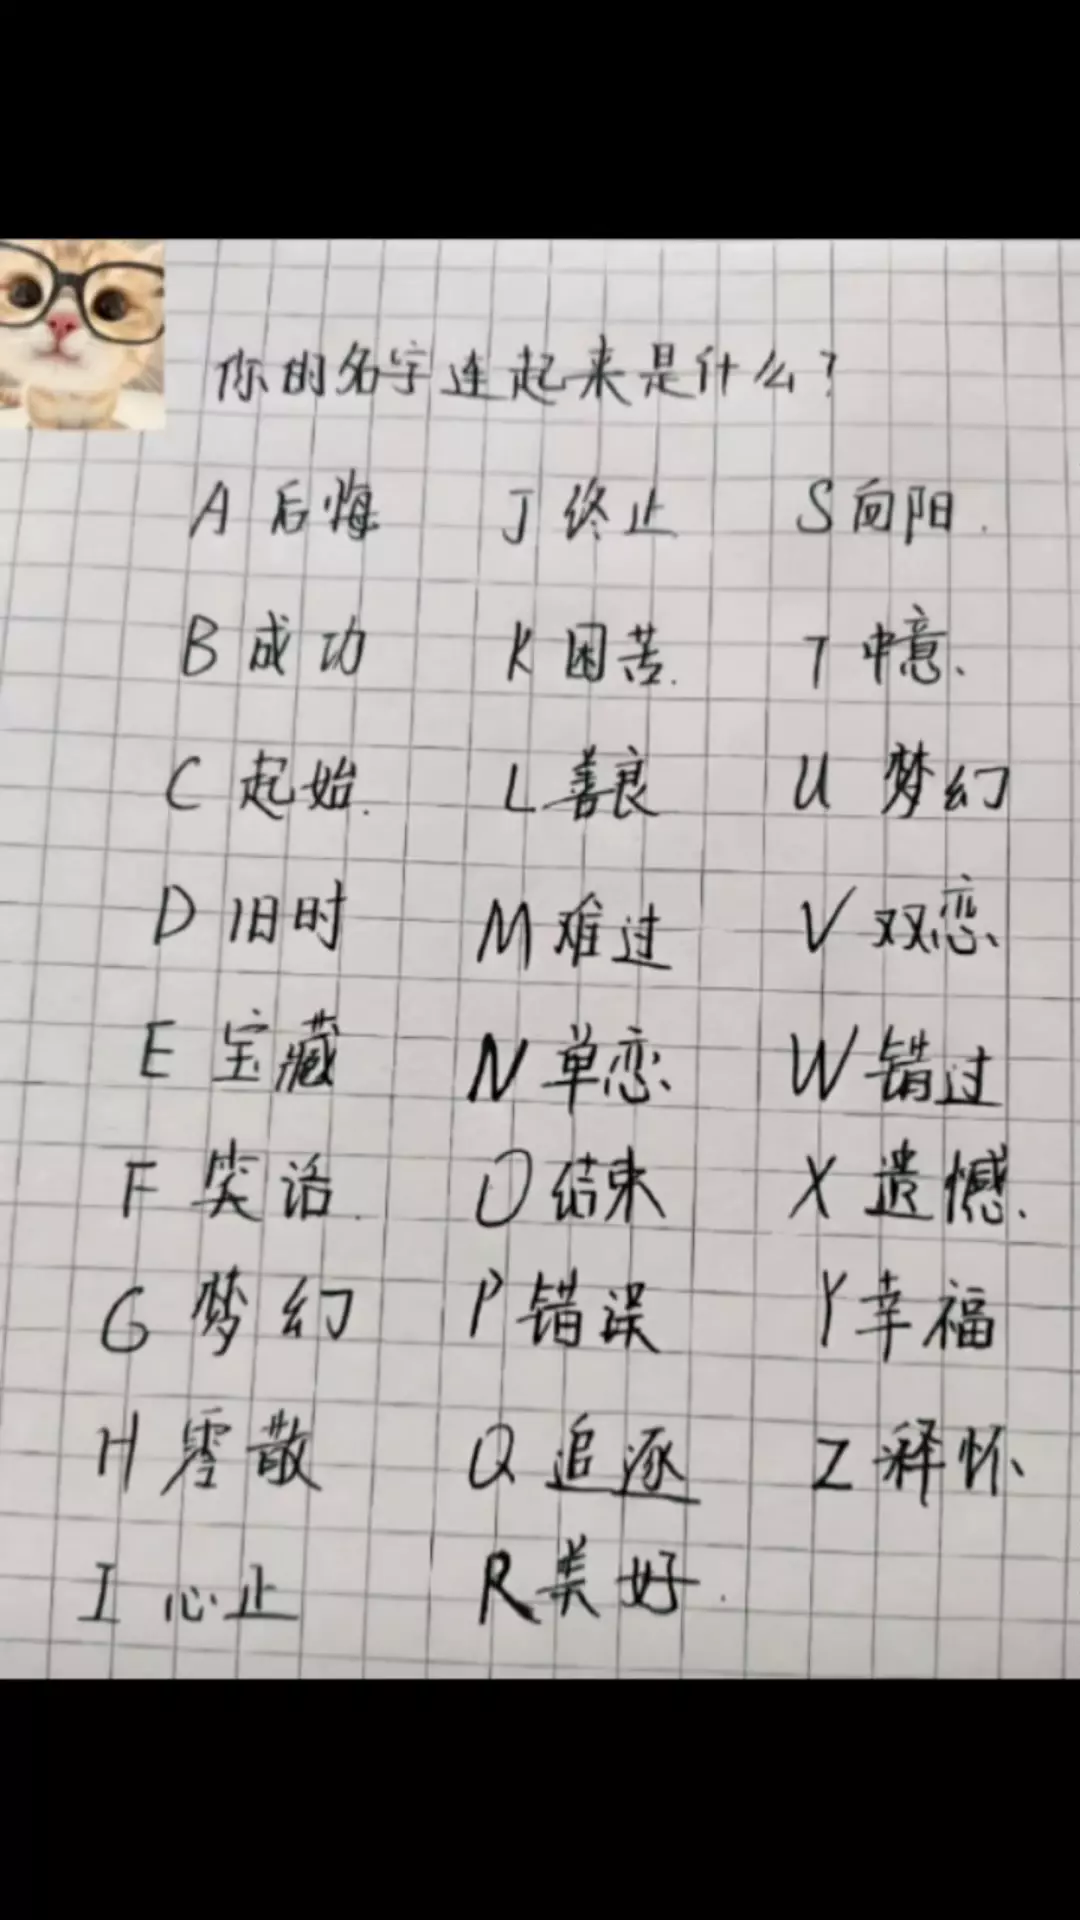 你的名字连起来是什么?
A 后悔 J 终止 S 向阳.
B 成功 K 困苦. T 中意、
C 起始. L 善良 U 梦幻
D 旧时 M 难过 V 双恋、
E 宝藏 N 单恋、 W 错过
F 笑话. O 结束 X 遗憾.
G 梦幻 P 错误 Y 幸福
H 零散 Q 追逐 Z 释怀、
I 心止 R 美好.